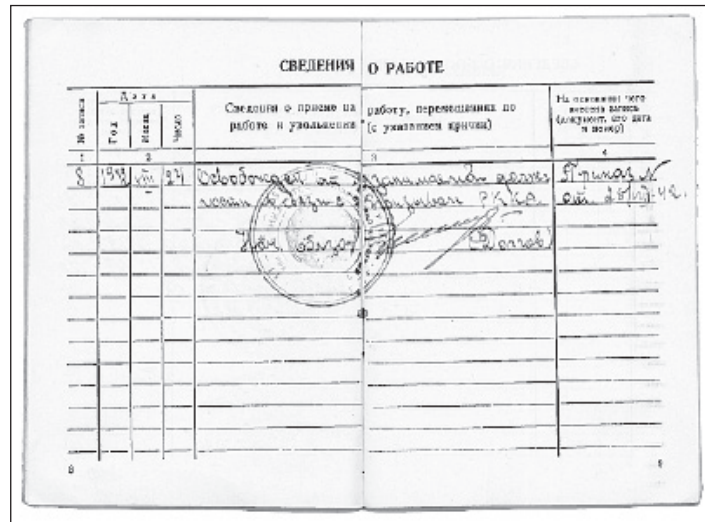 СВЕДЕНИЯ О РАБОТЕ
№ записи
Дата
Год
Месяц
Число
Сведения о приеме на работу, перемещениях по
работе и увольнении (с указанием причин)
На основании чего
внесена запись
(документ, его дата
и номер)
1 2 3 4
8 1942 VIII 27 Освобожден от занимаемой долж Приказ N
ности в связи с призывом РККА от 28/VIII-42.
Нач.
8 9